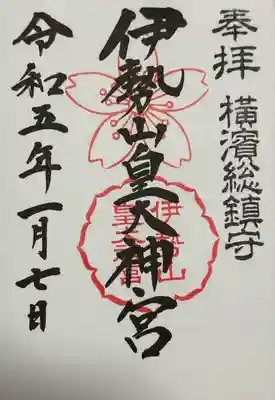 奉拝 横濱総鎮守
伊勢山皇大神宮
令和五年一月七日
伊勢山
皇大神宮